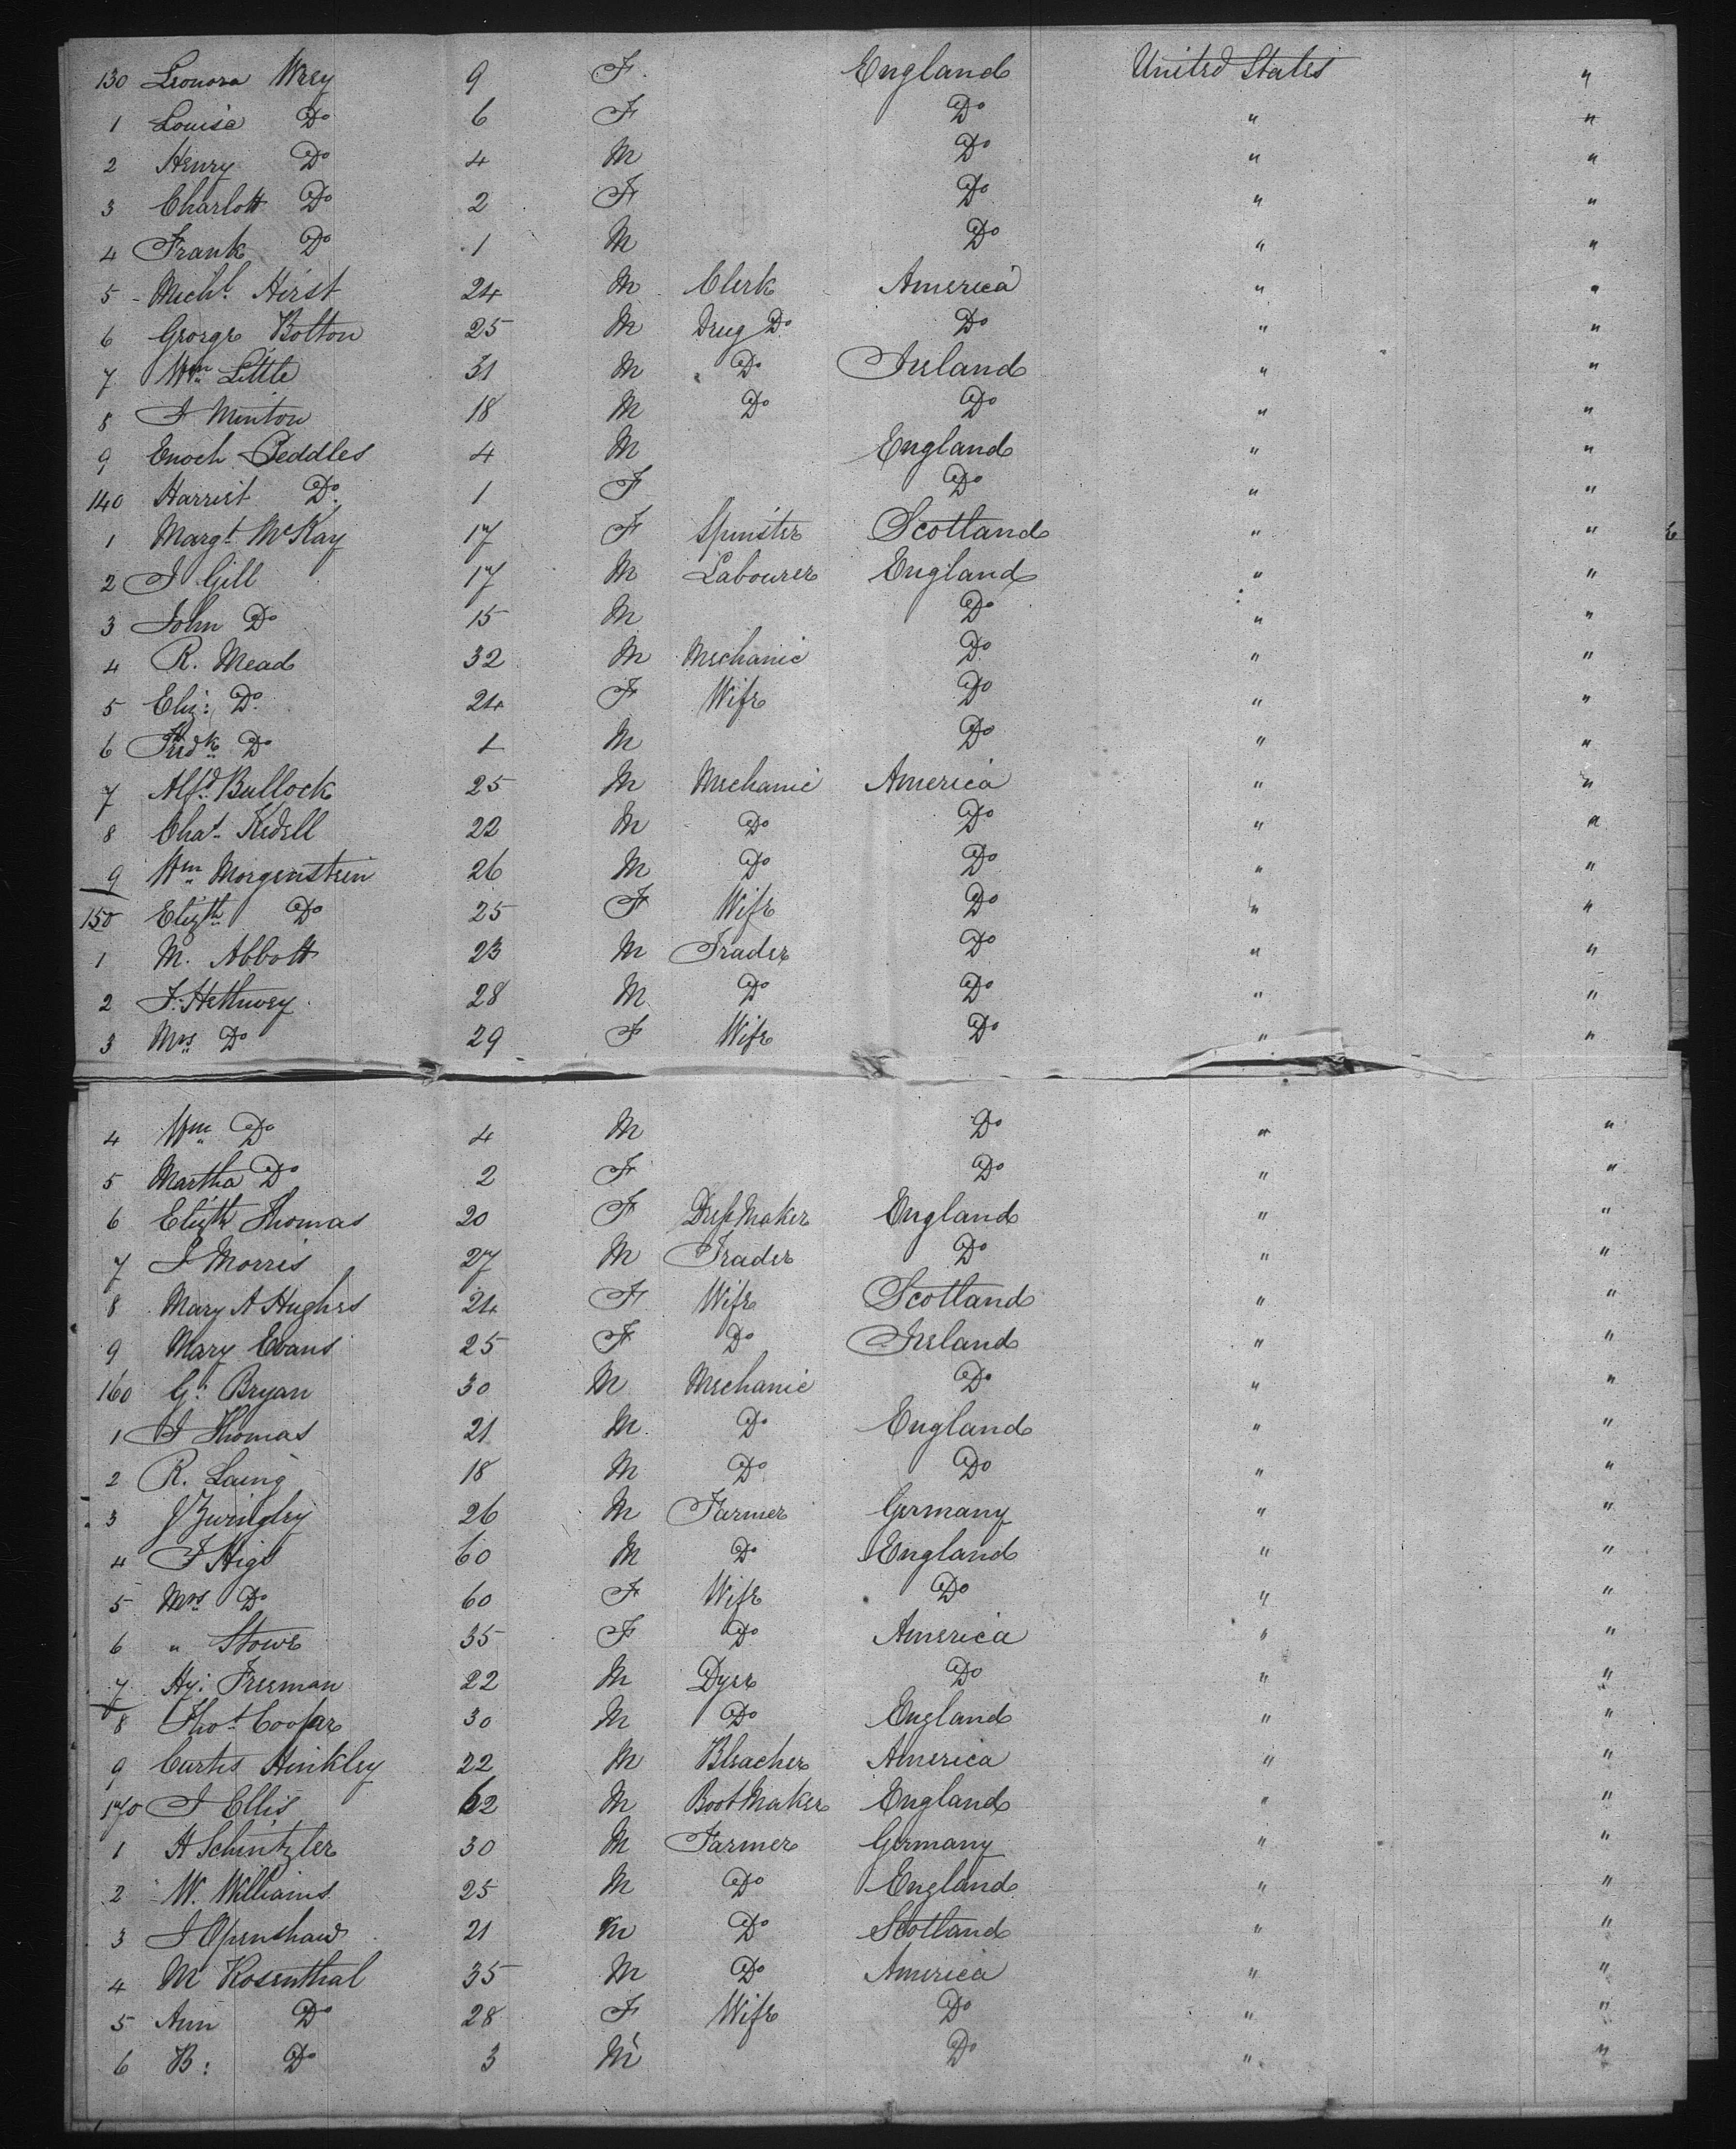 130 Leonora Wrey 9 F England United States "
1 Louisa Do 6 F Do " "
2 Henry Do 4 M Do " "
3 Charlott Do 2 F Do " "
4 Frank Do 1 M Do " "
5 Michl. Hirst 24 M Clerk America " "
6 George Bolton 25 M Drug Do Do " "
7 Wm Little 31 M Do Ireland " "
8 J Minton 18 M Do Do " "
9 Enoch Peddles 4 M England " "
140 Harriet Do 1 F Do " "
1 Margt. McKay 17 F Spinster Scotland " "
2 J Gill 17 M Labourer England " "
3 John Do 15 M Do " "
4 R. Mead 32 M Mechanic Do " "
5 Eliz: Do 24 F Wife Do " "
6 Fredk Do 1 M Do " "
7 Alfd. Bullock 25 M Mechanic America " "
8 Chas. Kedell 22 M Do Do " "
9 Wm Morgenstein 26 M Do Do " "
150 Elizth Do 25 F Wife Do " "
1 M. Abbott 23 M Trader Do " "
2 J. 28 M Do Do " "
3 Mrs Do 29 F Wife Do " "
4 Wm Do 4 M Do " "
5 Martha Do 2 F Do " "
6 Elizth Thomas 20 F Dress Maker England " "
7 J Morris 27 M Trader Do " "
8 Mary A Hughes 24 F Wife Scotland " "
9 Mary Evans 25 F Do Ireland " "
160 G: Bryan 30 M Mechanic Do " "
1 J Thomas 21 M Do England " "
2 R. Laing 18 M Do Do " "
3 J Zwingley 26 M Farmer Germany " "
4 J Higs 60 M Do England " "
5 Mrs Do 60 F Wife Do " "
6 " Stowe 35 F Do America " "
7 Hy: Freeman 22 M Dyer Do " "
8 Thos. Cooper 30 M Do England " "
9 Curtis Hinkley 22 M Bleacher America " "
170 J Ellis 62 M Boot Maker England " "
1 H Schintzler 30 M Farmer Germany " "
2 W. Williams 25 M Do England " "
3 J Openshaw 21 M Do Scotland " "
4 M Rosenthal 35 M Do America " "
5 Ann Do 28 F Wife Do " "
6 B: Do 3 M Do " "